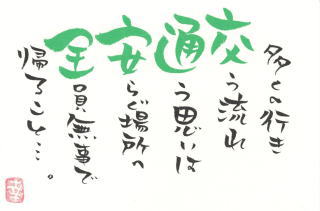 多くの行き
交う流れ
通う思いは
安らぐ場所へ
全員無事で
帰ること…。